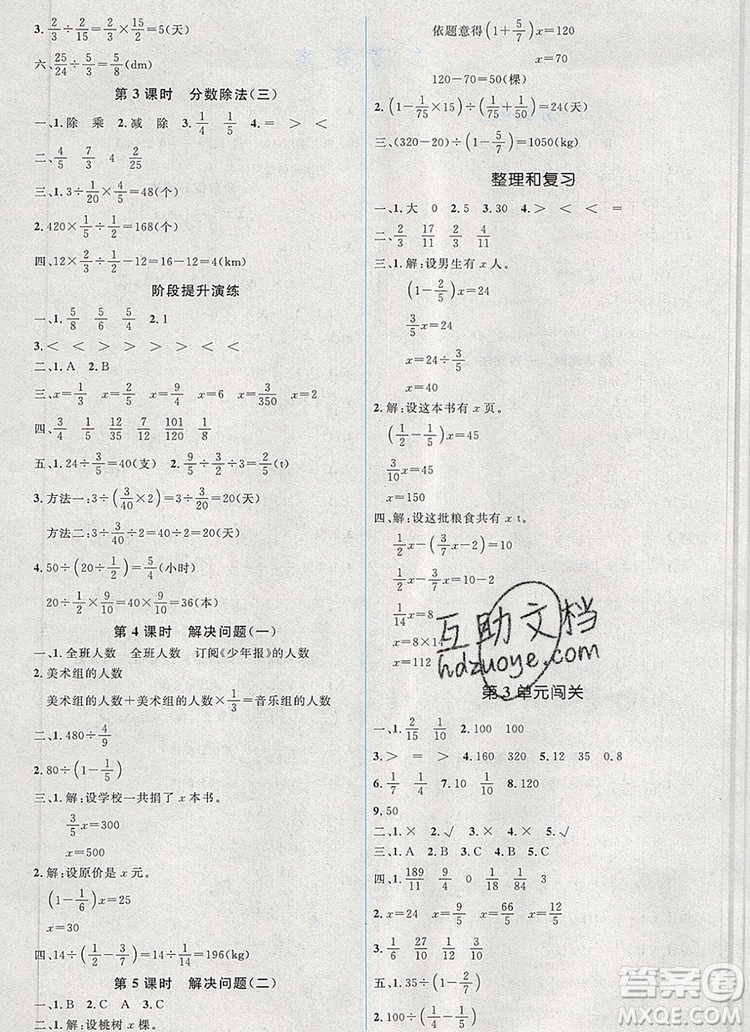 3. 2/3÷2/15=2/3×15/2=5(天)
六、25/24÷5/12=5/2(dm)
第 3 课时　分数除法(三)
一、1. 除　乘　2. 减　除　3. 1/4　1/5　4. =　>　<
二、4/5　7/3　4　25/4
三、1. 3÷1/20×4/5=48(个)
2. 420×1/5÷1/2=168(个)
四、12×2/3÷1/2-12=16-12=4(km)
阶段提升演练
一、1. 5/8　5/6　5/4　2. 1
3. <　<　>　>　>　<　<
二、1. A　2. B
三、x=1/2　x=2/3　x=9/4　x=6　x=3/350　x=4/9
四、1/60　8/35　12/7　101/120　1/18
五、1. 24÷3/5=40(支)　2. 9/5÷1/5÷3=3(t)
3. 方法一: 3÷(3/40×2)=3÷3/20=20(天)
方法二: 3÷3/40÷2=40÷2=20(天)
4. 50÷(20÷1/2)=5/4(小时)
20÷1/2×9/10=40×9/10=36(本)
第 4 课时　解决问题(一)
一、1. 全班人数　全班人数　订阅《少年报》的人数
2. 美术组的人数
美术组的人数+美术组的人数×1/3=音乐组的人数
二、1. 480÷4/9
2. 80÷(1-1/5)
三、1. 解:设学校一共捐了 x 本书。
3/5x=300
x=500
2. 解:设原价是 x 元。
(1-1/6)x=25
x=30
四、14÷(1/2-3/7)=14÷1/14=196(kg)
第 5 课时　解决问题(二)
一、1. B　C　A　D　2. B
二、1. 解:设桃树 x 棵。
依题意得(1+5/7)x=120
x=70
120-70=50(棵)
2. (1-1/75×15)÷(1/75+1/50)=24(天)
三、(320-20)÷(1-5/7)=1050(kg)
整理和复习
一、1. 大　0　2. 5　3. 30　4. >　<　<　=
二、2/3　17/11　2/11　4/9
三、1. 解:设男生有 x 人。
(1-2/5)x=24
3/5x=24
x=24÷3/5
x=40
2. 解:设这本书有 x 页。
(1/2-1/5)x=45
3/10x=45
x=150
四、解:设这批粮食共有 x t。
1/2x-(3/7x-2)=10
1/2x-3/7x=10-2
1/14x=8
x=8×14
x=112
第 3 单元闯关
一、1. 2/15　1/6　2. 100　100
3. >　=　>　4. 160　320　5. 12　35　0.8
6. 1/7　1/4　7. 1/10　8. 120
9. 50
二、1. ×　2. √　3. ×　4. ×　5. √
三、1. C　2. A　3. C　4. B　5. C
四、1. 189/11　9/4　0　1/4
2. x=2/9　x=9/100　x=66/5　x=12/55
3. 1/40　4/9　9/10
五、1. 35÷(1-
2. 100÷(1-
互助文档
hdzuoye.com
答案圈
MXQE.COM